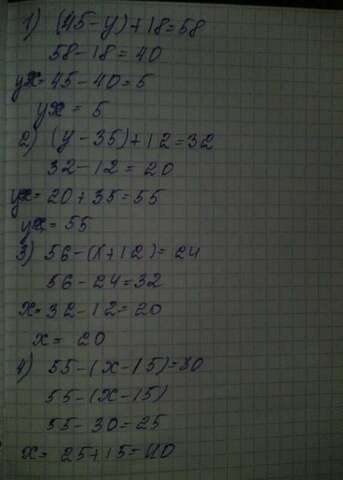 1) (45-y)+18=58
58-18=40
y=45-40=5
y=5
2) (y-35)+12=32
32-12=20
y=20+35=55
y=55
3) 56-(x+12)=24
56-24=32
x=32-12=20
x=20
4) 55-(x-15)=30
55-(x-15)
55-30=25
x=25+15=40